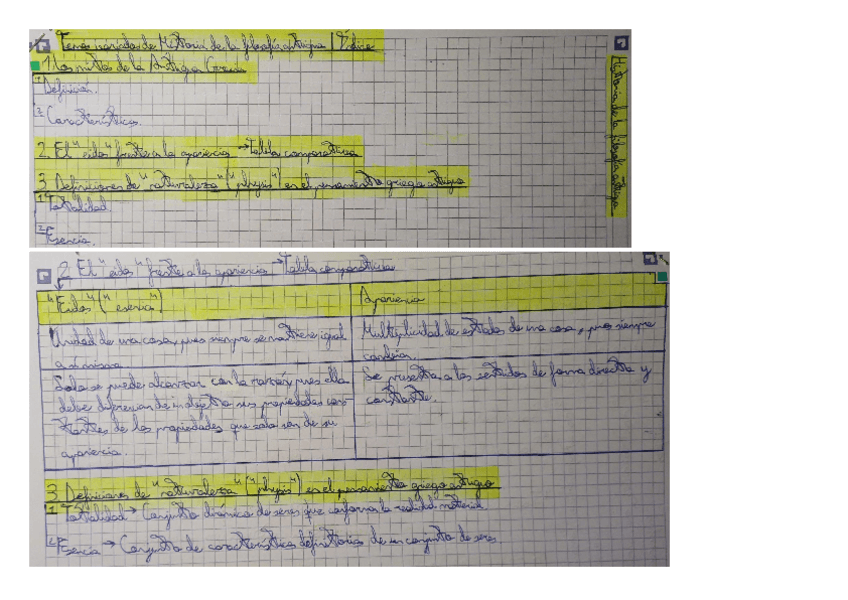 Temas variados de Historia de la filosofía antigua | Índice
1. Los mitos de la Antigua Grecia
1. Definición.
2. Características.
2. El "eidos" frente a la apariencia → Tabla comparativa
3. Definiciones de "naturaleza" ("physis") en el pensamiento griego antiguo
1. Totalidad.
2. Esencia.
Historia de la filosofía antigua
2. El "eidos" frente a la apariencia → Tabla comparativa
"Eidos" ("esencia")
Apariencia
Unidad de una cosa, pues siempre se mantiene igual
a sí misma
Multiplicidad de estados de una cosa, pues siempre
cambia.
Solo se puede alcanzar con la razón, pues ella
debe diferenciar de indirecta sus propiedades cons-
tantes de las propiedades que solo son de su
apariencia.
Se presenta a los sentidos de forma directa y
constante.
3. Definiciones de "naturaleza" ("physis") en el pensamiento griego antiguo
1. Totalidad → Conjunto dinámico de seres que conforma la realidad material.
2. Esencia → Conjunto de características definitorias de un conjunto de seres.